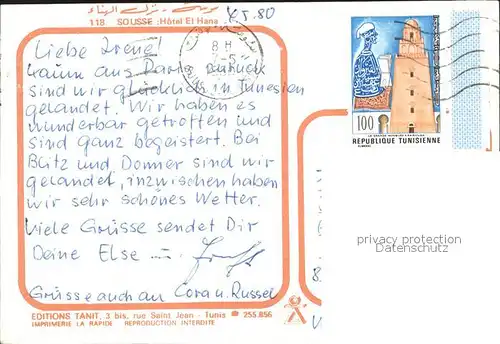 سوسة - نزل الهناء
118 SOUSSE : Hôtel El Hana
V.5.80
8 H
-5
Liebe Irene!
kaum aus Paris zurück
sind wir glücklich in Tunesien
gelandet. Wir haben es
wunderbar getroffen und
sind ganz begeistert. Bei
Blitz und Donner sind wir
gelandet, inzwischen haben
wir sehr schönes Wetter.
Viele Grüsse sendet Dir
Deine Else
Grüsse auch an Cora u. Russel
100
RÉPUBLIQUE TUNISIENNE
privacy protection
Datenschutz
8
V
EDITIONS TANIT, 3 bis, rue Saint Jean - Tunis ☎ 255.856
IMPRIMERIE LA RAPIDE REPRODUCTION INTERDITE